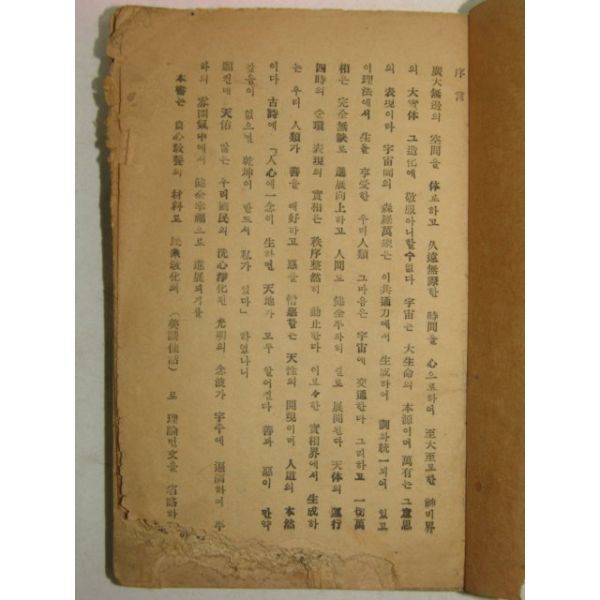 序言
廣大無邊의 空間을 体로하고 久遠無際한 時間을 心으로하여 至大至모한 神비界
의 大實体 그造化에 敬服아니할수없다 宇宙는 大生命의 本源이며 萬有는 그意思
의 表現이라 宇宙間의 森羅萬象은 이共通力에서 生成하여 調和統一되어 있고
이理法에서 生을 享受한 우리人類 그마음은 宇宙에 交通한다 그리하고 一切萬
相은 完全無缺로 進展向上하고 人間도 健全 길로 展開된다 天体의 運行
四時의 순環 表現의 實相은 秩序整然히 動止한다 이모든 實相界에서 生成하
는 우리 人類가 善을 愛好하고 惡을 憎惡함은 天性의 開現이며 人道의 本然
이다 古詩에 「人心에一念이 生하면 天地가 모두 알어진다 善과 惡이 만약
갚음이 없으면 乾坤이 반드시 私가 있다」하였나니
願컨대 天佑 우리國民의 洗心淨化된 光明의 念波가 宇宙에 遍滿하여
하의 雰圍氣中에서 健全幸福으로 進展되기를
本書는 自心敎養의 材料고 民衆敎化의 로 理論만文을 省略하